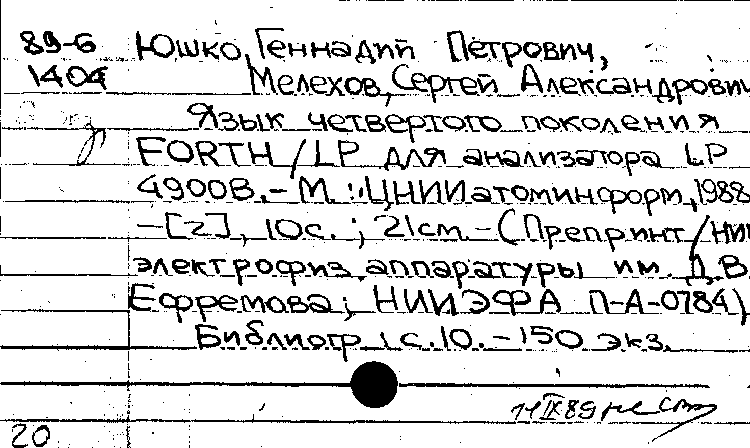 89-6 Юшко, Геннадий Петрович,
1404 Мелехов, Сергей Александрович
Язык четвертого поколения
FORTH/LP для анализатора LP
4900В. - М. : ЦНИИатоминформ, 1988
-[2], 10с. ; 21см. - (Препринт/НИИ
электрофиз. аппаратуры им. Д.В.
Ефремова; НИИЭФА П-А-0784)
Библиогр.: с.10. - 150 экз.
11 IX 89
20